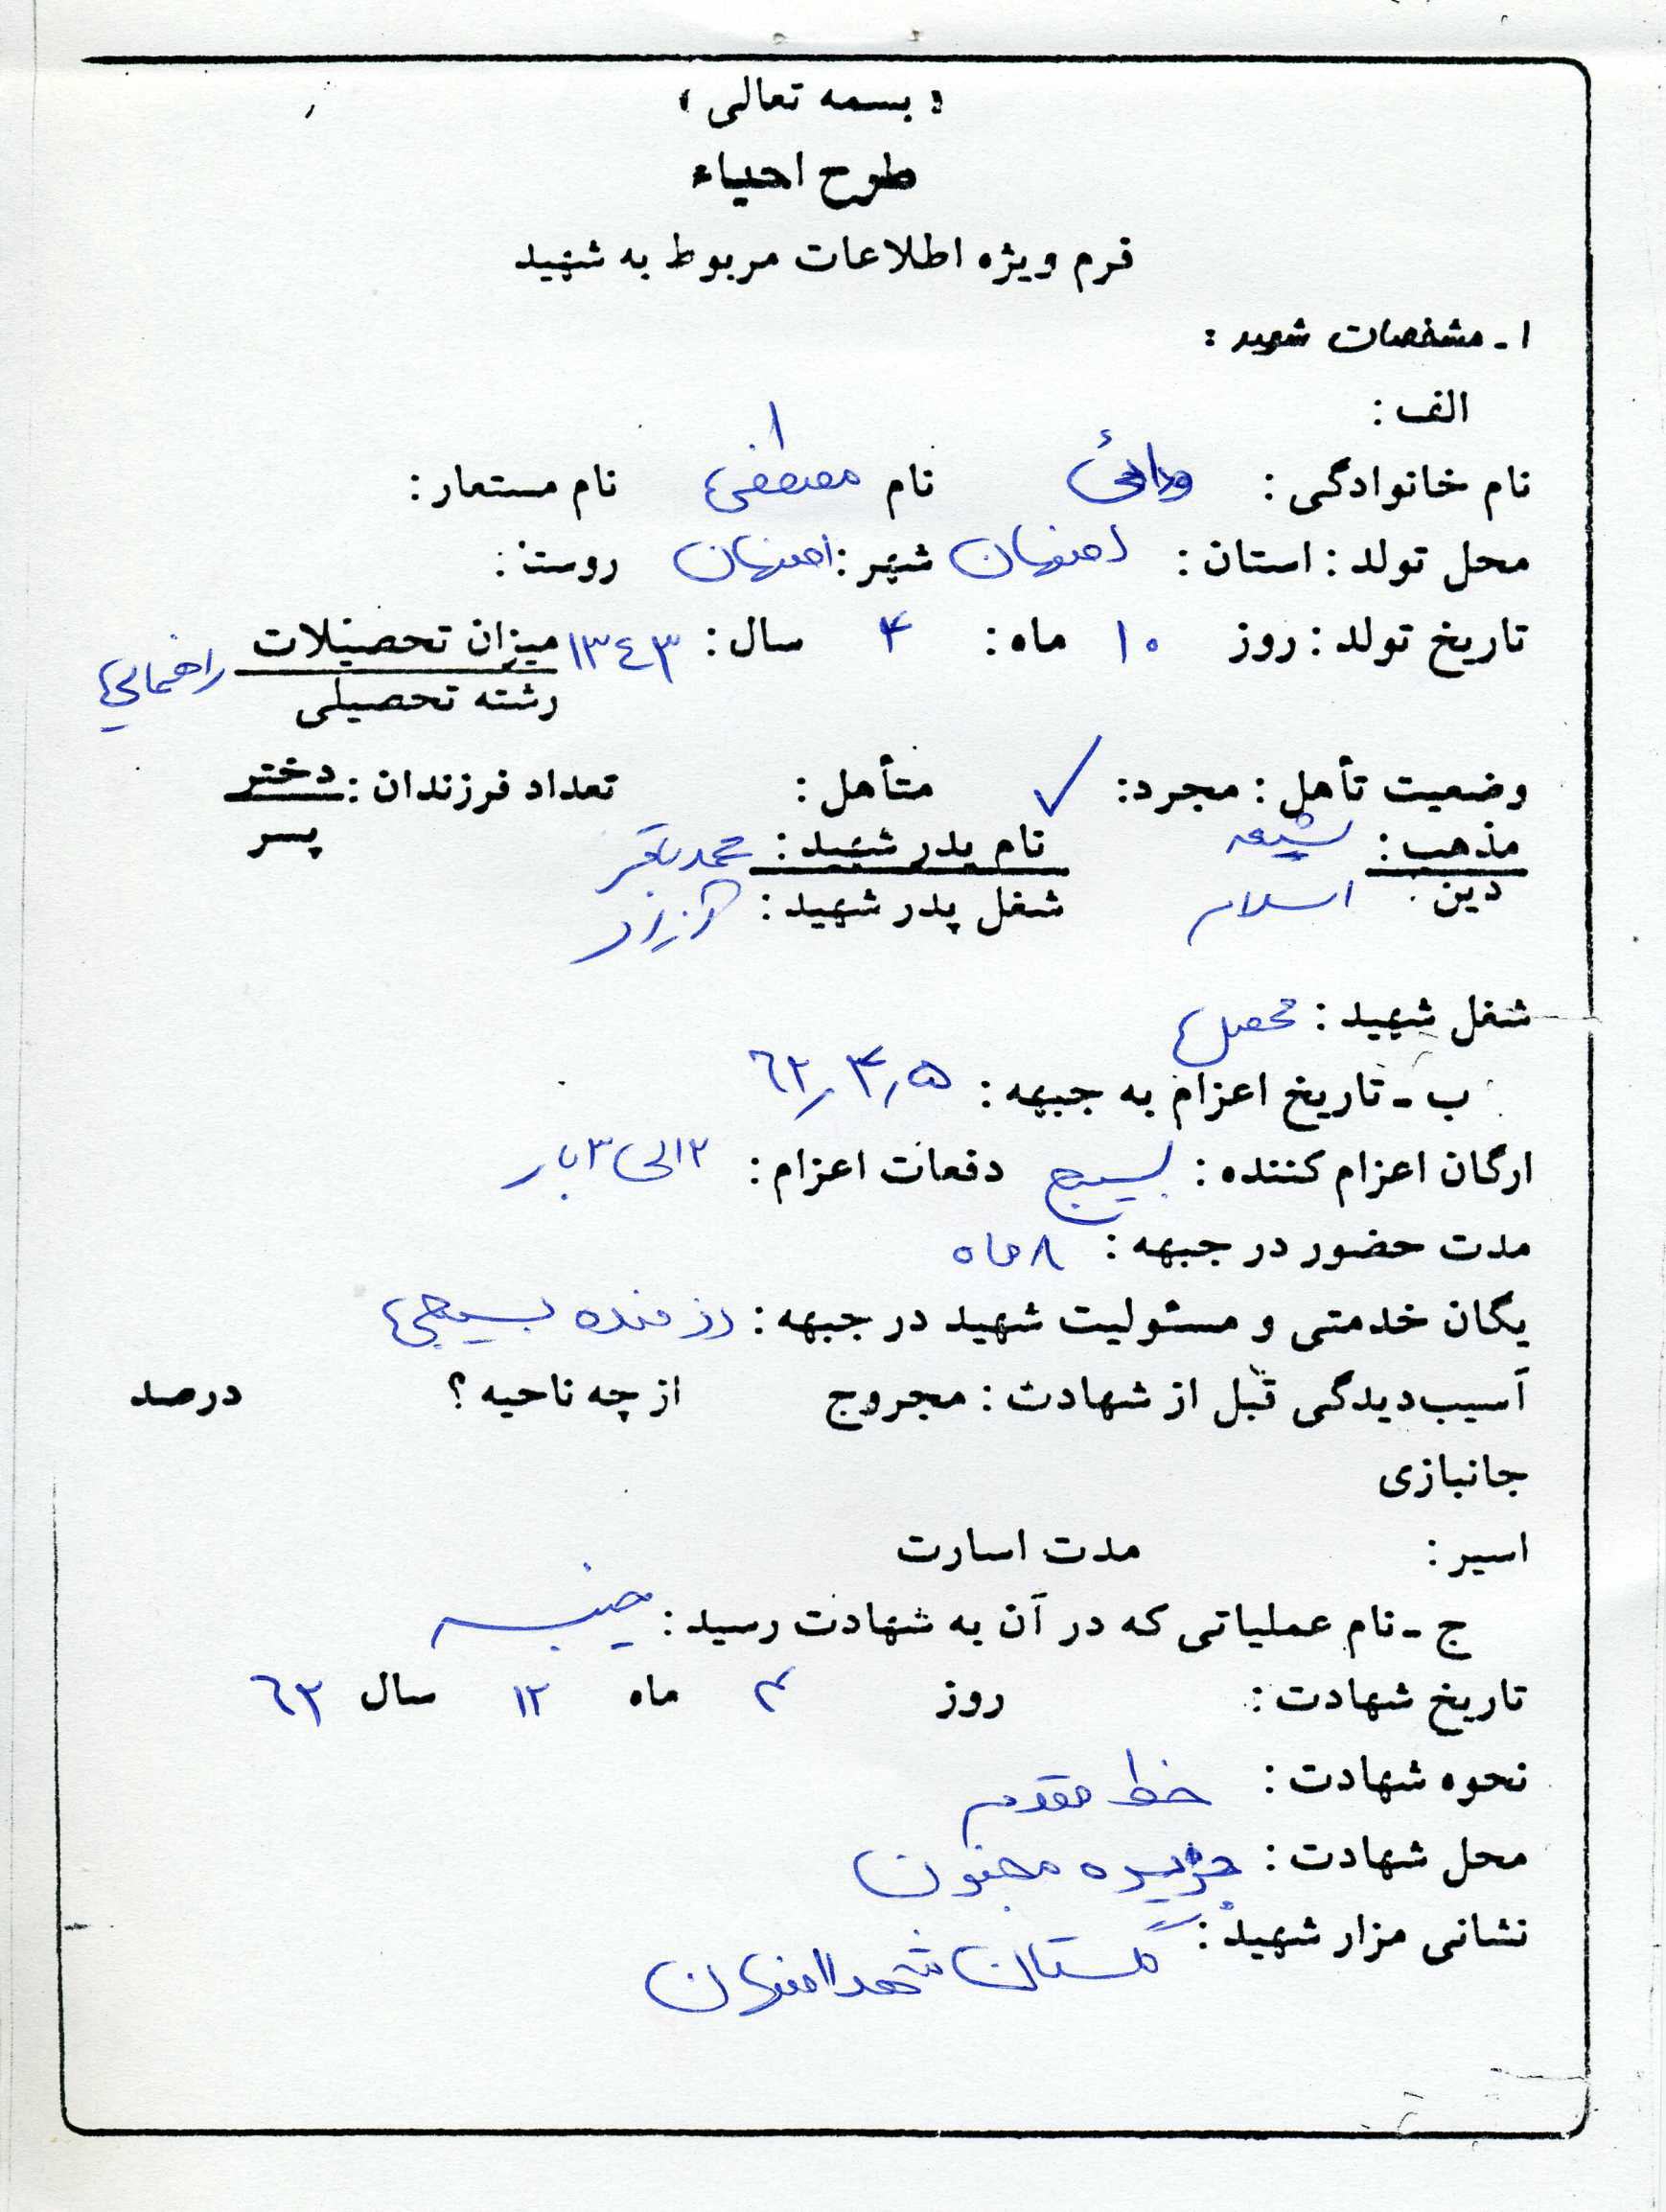 « بسمه تعالی »
طرح احیاء
فرم ویژه اطلاعات مربوط به شهید
۱ـ مشخصات شهید :
الف :
نام خانوادگی : نام مصطفی نام مستعار :
محل تولد : استان : اصفهان شهر : اصفهان روستا :
تاریخ تولد : روز ۱۰ ماه : ۴ سال : ۱۳۴۳ میزان تحصیلات راهنمایی
رشته تحصیلی
وضعیت تأهل : مجرد : ✓ متأهل : تعداد فرزندان : دختر
پسر
مذهب : شیعه نام پدر شهید : محمد باقر
دین : اسلام شغل پدر شهید : آزاد
شغل شهید : محصل
ب ـ تاریخ اعزام به جبهه : ۶۲٫۴٫۵
ارگان اعزام کننده : بسیج دفعات اعزام : ۲ الی ۳ بار
مدت حضور در جبهه : ۸ ماه
یگان خدمتی و مسئولیت شهید در جبهه : رزمنده بسیجی
آسیب‌دیدگی قبل از شهادت : مجروح از چه ناحیه ؟ درصد
جانبازی
اسیر : مدت اسارت
ج ـ نام عملیاتی که در آن به شهادت رسید :
تاریخ شهادت : روز ۴ ماه ۱۲ سال ۶۲
نحوه شهادت : خط مقدم
محل شهادت : جزیره مجنون
نشانی مزار شهید : گلستان شهدا اصفهان